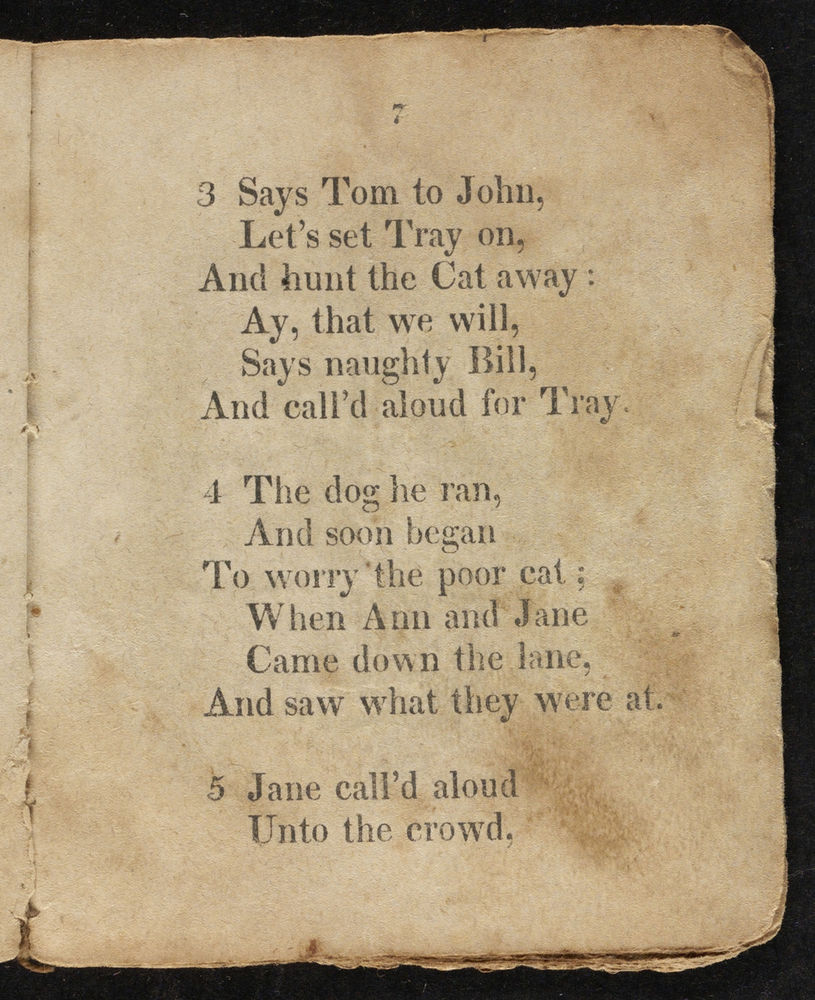 7
3 Says Tom to John,
Let's set Tray on,
And hunt the Cat away:
Ay, that we will,
Says naughty Bill,
And call'd aloud for Tray.
4 The dog he ran,
And soon began
To worry the poor cat;
When Ann and Jane
Came down the lane,
And saw what they were at.
5 Jane call'd aloud
Unto the crowd,